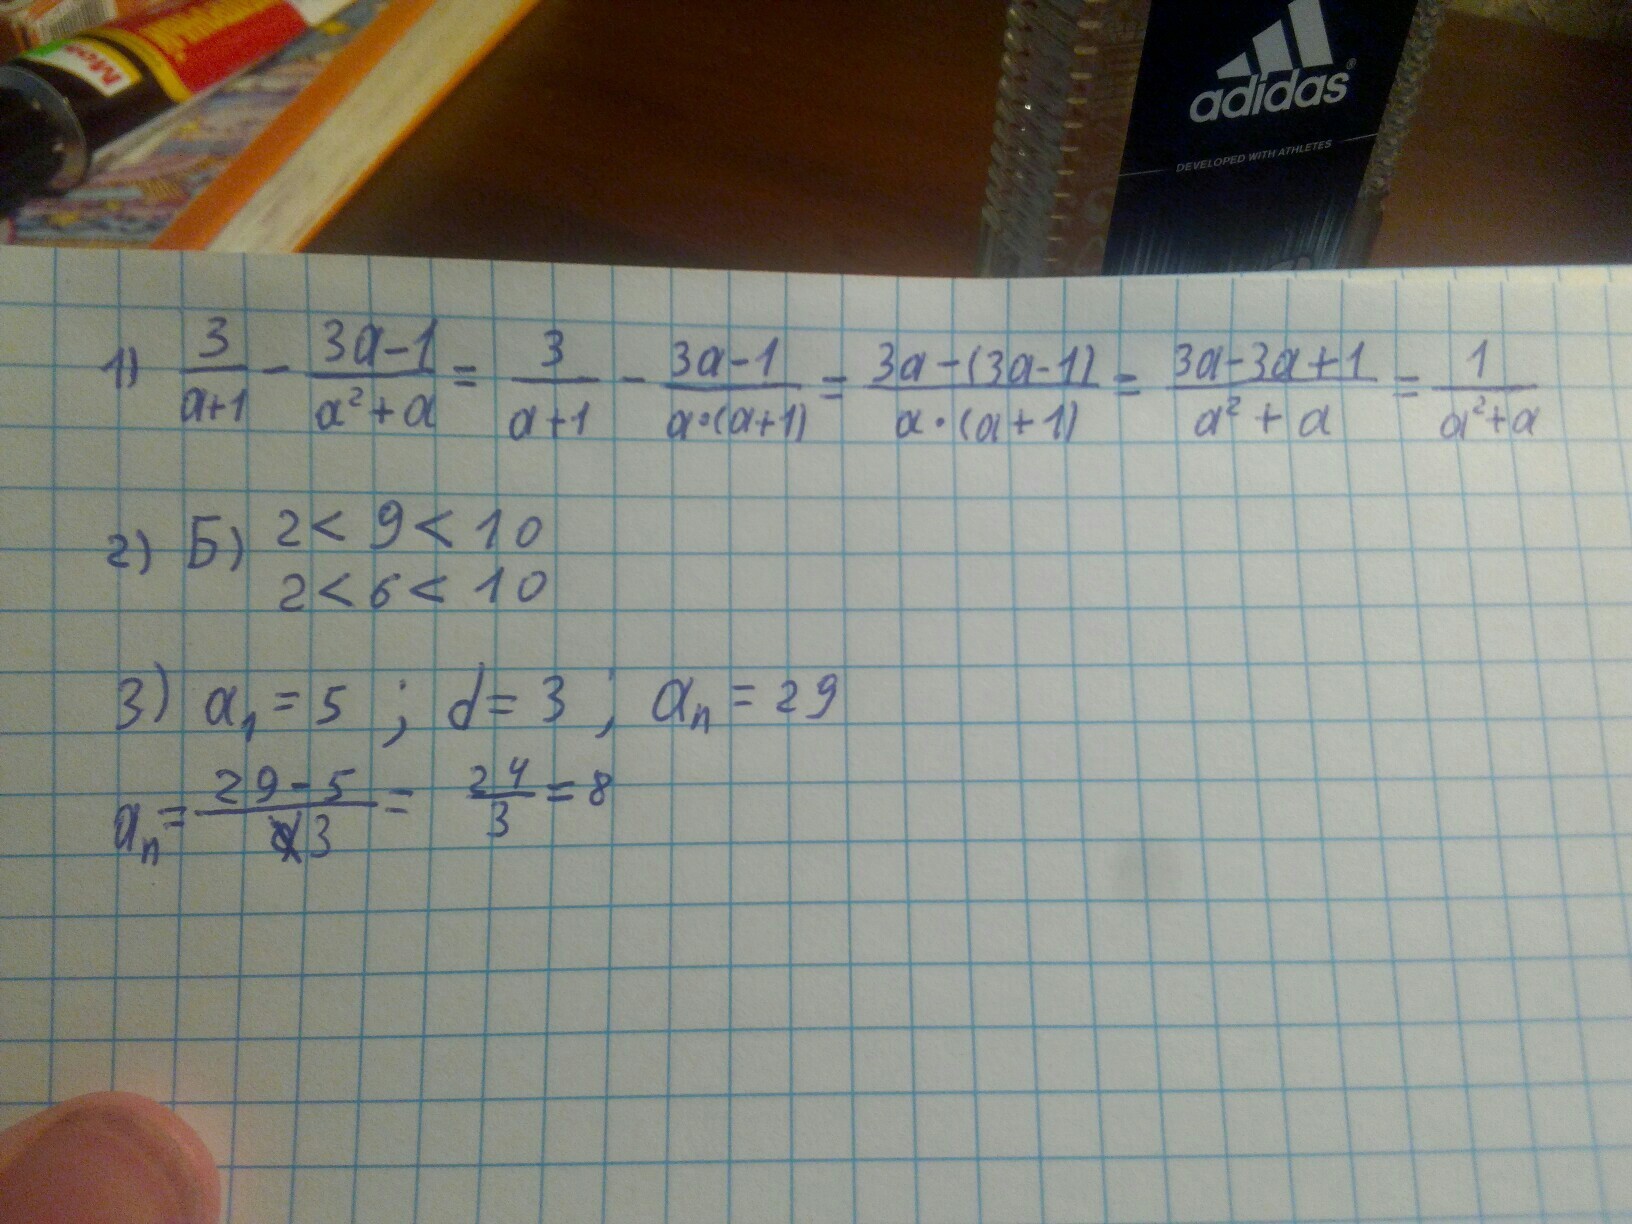 adidas®
DEVELOPED WITH ATHLETES
1) 3/(a+1) - (3a-1)/(a²+a) = 3/(a+1) - (3a-1)/(a·(a+1)) = (3a-(3a-1))/(a·(a+1)) = (3a-3a+1)/(a²+a) = 1/(a²+a)
2) Б) 2 < 9 < 10
2 < 6 < 10
3) a₁ = 5 ; d = 3 ; aₙ = 29
aₙ = (29-5)/3 = 24/3 = 8